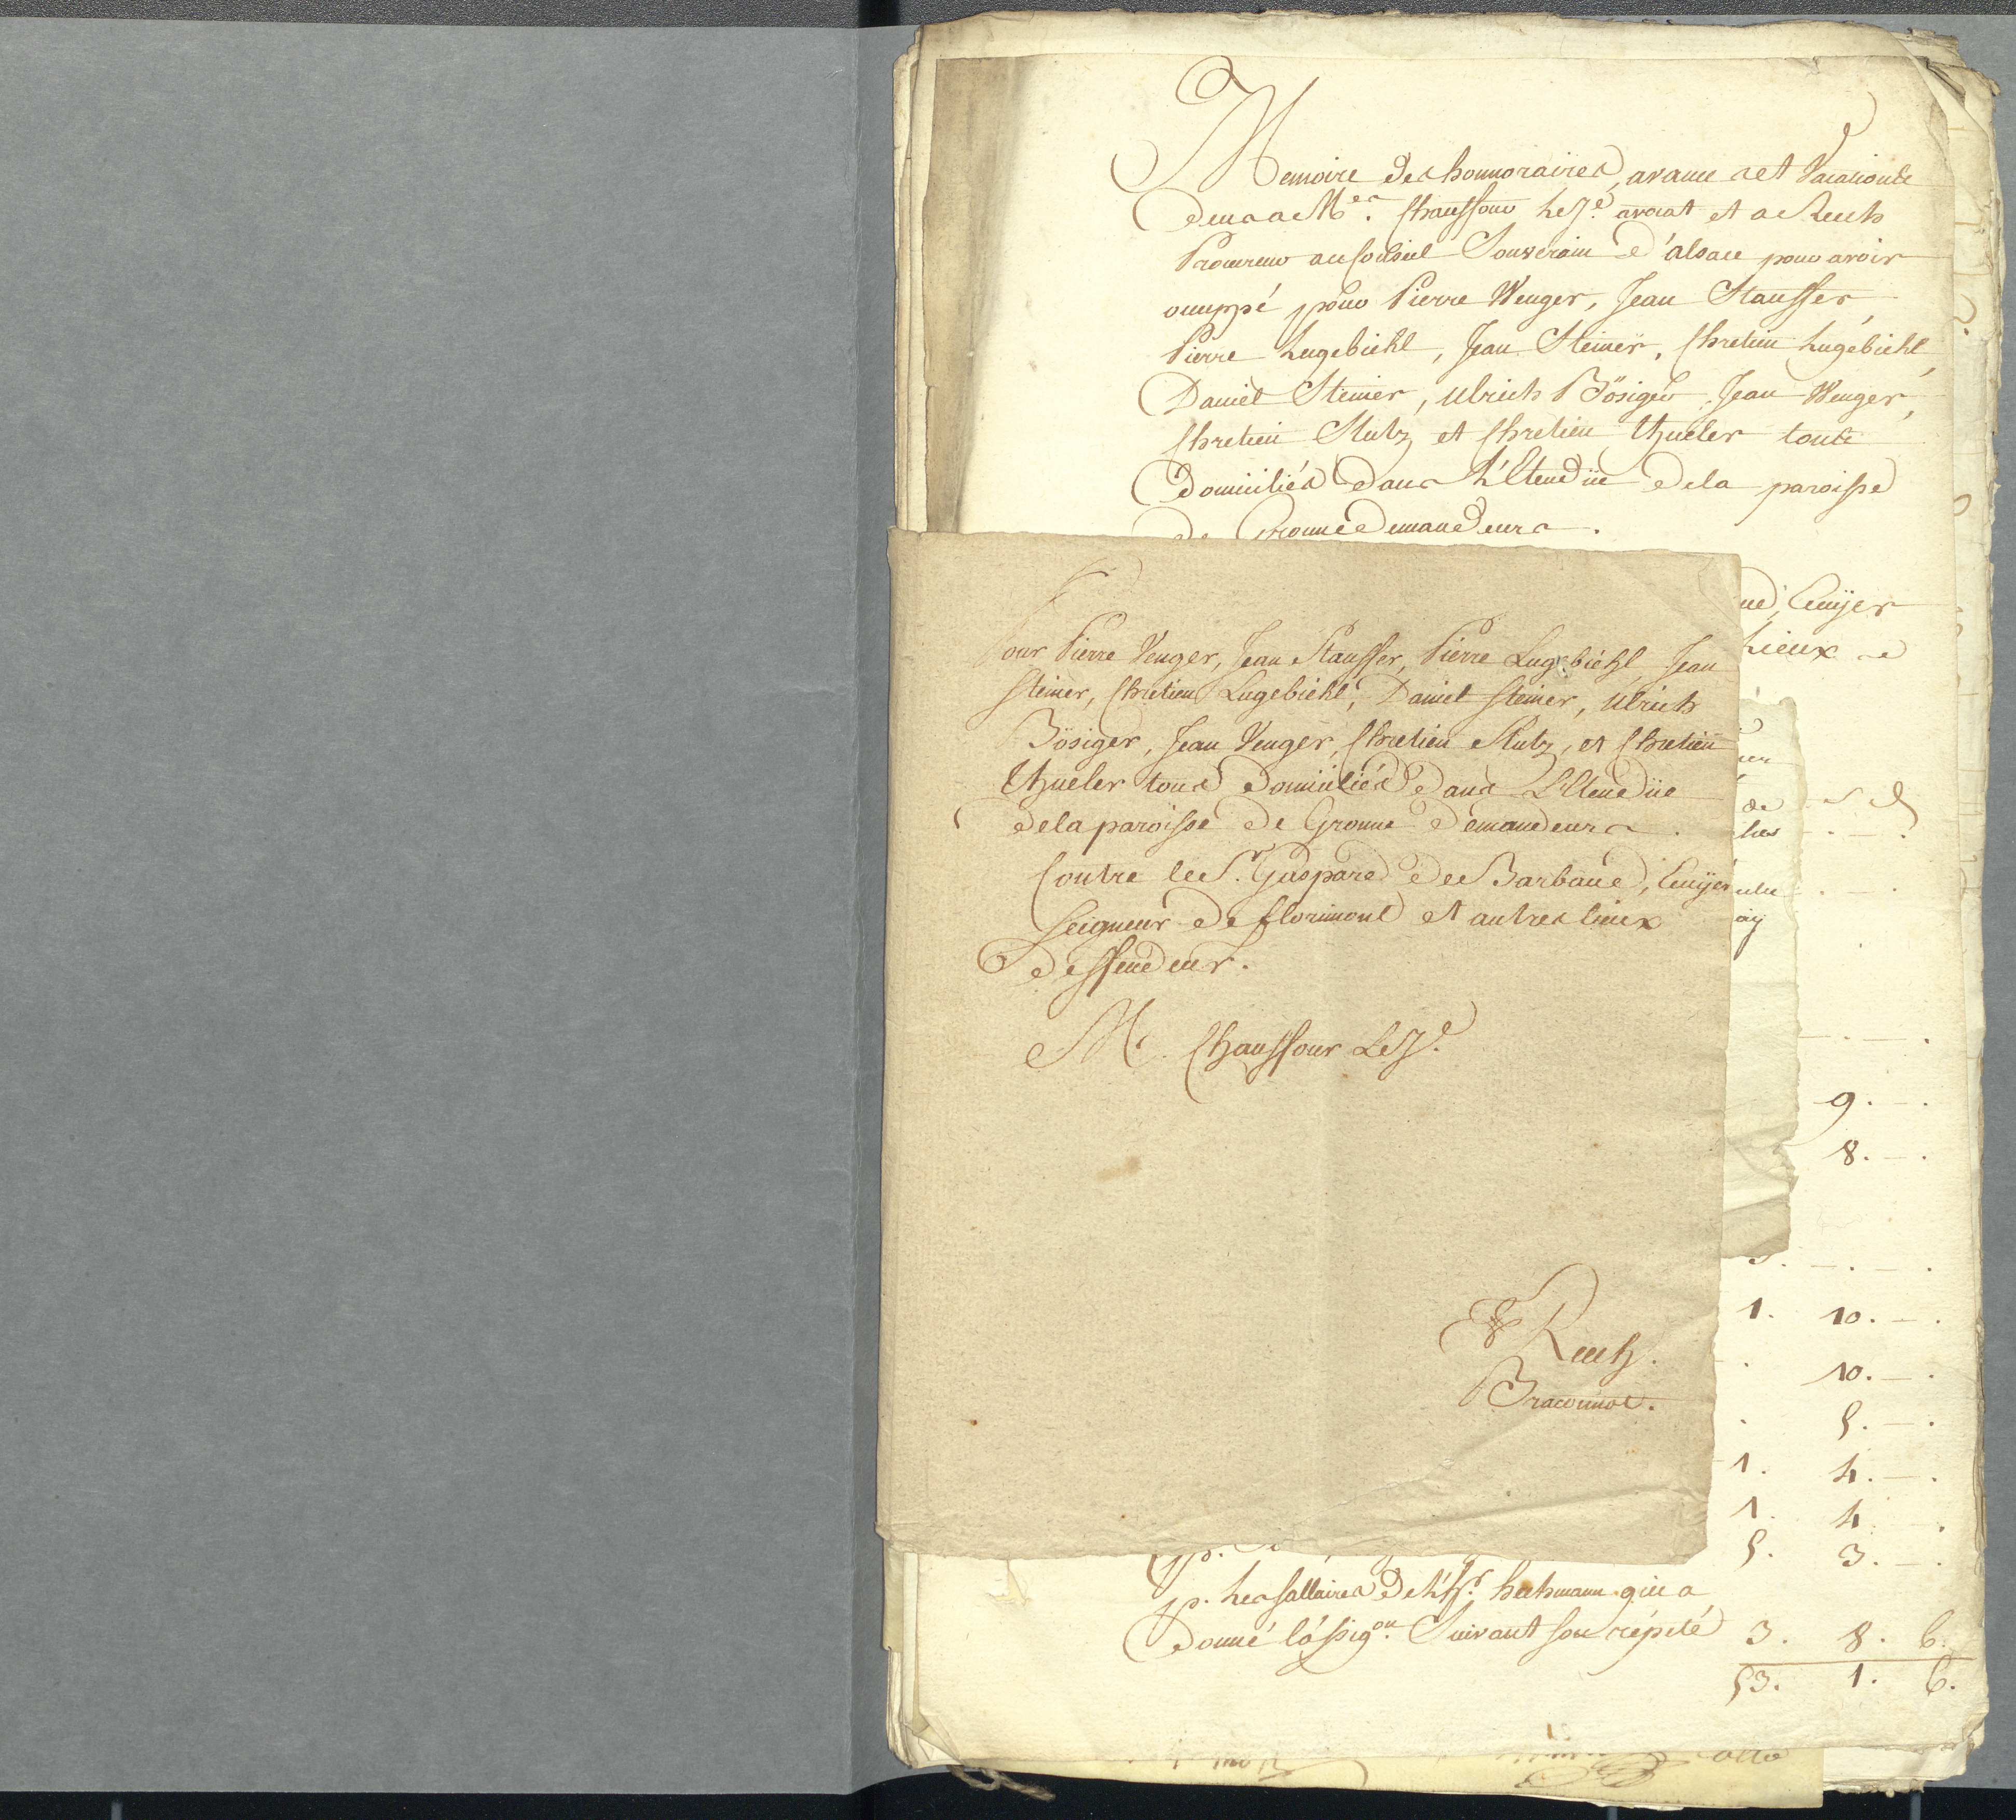 Memoire des honnoraires, avance et Vacations
deues a M.es Chauffour Le J.e avocat et a Reech
Procureur au Conseil Souverain d'alsace pour avoir
occuppé pour Pierre Wenger, Jean Stauffer,
Pierre Lugebiehl, Jean Steiner, Chretien Lugebiehl,
Daniel Steiner, Ulrich Bösiger, Jean Wenger,
Chretien Stutz, et Chretien Thzueler touts
Domiciliés dans L'Etendüe de la paroisse
de Gronne Demandeurs.
Ecuijer
Lieux
Pour Pierre Venger, Jean Stauffer, Pierre Lugebiehl, Jean
Steiner, Chretien Lugebiehl, Daniel Steiner, Ulrich
Bösiger, Jean Venger, Chretien Stutz, et Chretien
Thzueler tous Domiciliés dans L'Etendüe
de la paroisse de Gronne Demandeurs.
Contre le S.r Gaspard de Barbaud, Ecuijer
Seigneur de florimont et autres lieux
Deffendeur.
M.e Chauffour Le J.e
Reech.
Braconnot.
9. — .
8. — .
1. 10. — .
10. — .
5. — .
1. 4. — .
1. 4. — .
5. 3. — .
p. Les sallaires de L'h.r hechmann qui a
Donné l'assig.on Suivant son répété 3. 8. 6.
53. 1. 6.